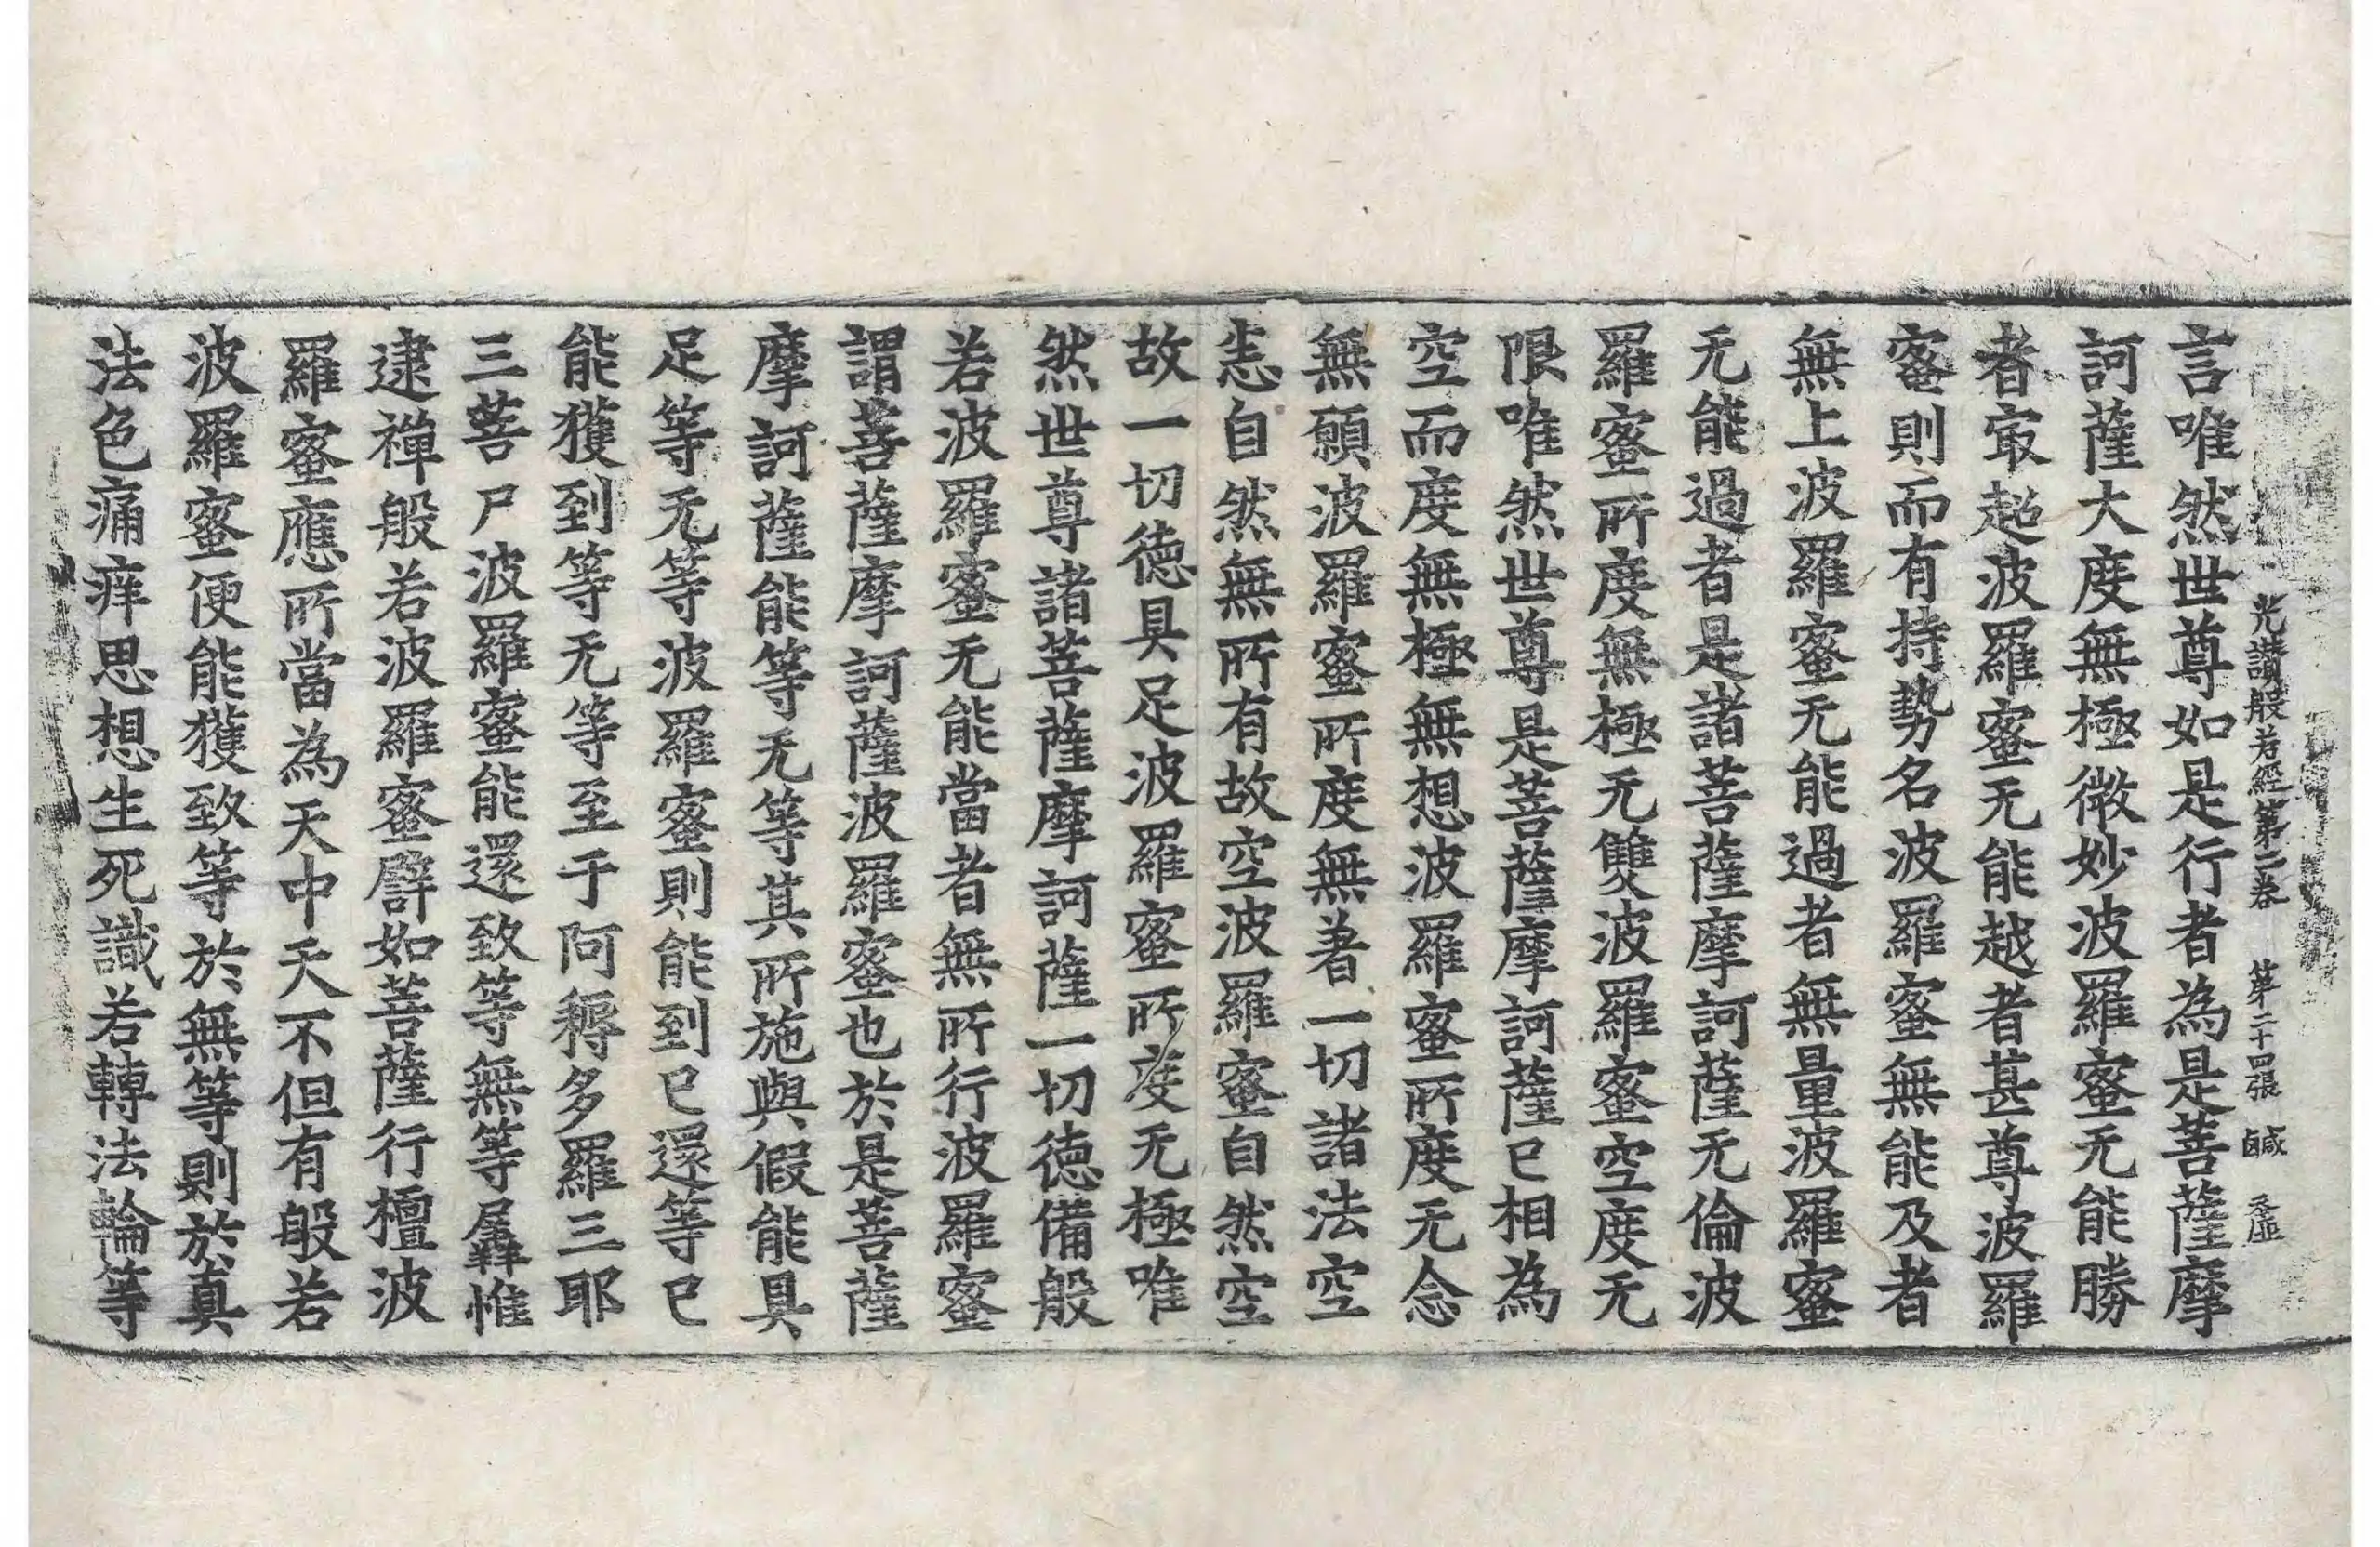 光讃般若經第二卷 第二十四張 鹹
言唯然世尊如是行者為是菩薩摩
訶薩大度無極微妙波羅蜜无能勝
者冣超波羅蜜无能越者甚尊波羅
蜜則而有持勢名波羅蜜無能及者
無上波羅蜜无能過者無量波羅蜜
无能過者是諸菩薩摩訶薩无倫波
羅蜜所度無極无雙波羅蜜空度无
限唯然世尊是菩薩摩訶薩已相為
空而度無極無想波羅蜜所度无念
無願波羅蜜所度無著一切諸法空
恙自然無所有故空波羅蜜自然空
故一切德具足波羅蜜所度无極唯
然世尊諸菩薩摩訶薩一切德備般
若波羅蜜无能當者無所行波羅蜜
謂菩薩摩訶薩波羅蜜也於是菩薩
摩訶薩能等无等其所施與假能具
足等无等波羅蜜則能到已還等已
能獲到等无等至于阿耨多羅三耶
三菩尸波羅蜜能還致等無等羼惟
逮禪般若波羅蜜譬如菩薩行檀波
羅蜜應所當為天中天不但有般若
波羅蜜便能獲致等於無等則於真
法色痛痒思想生死識若轉法輪等